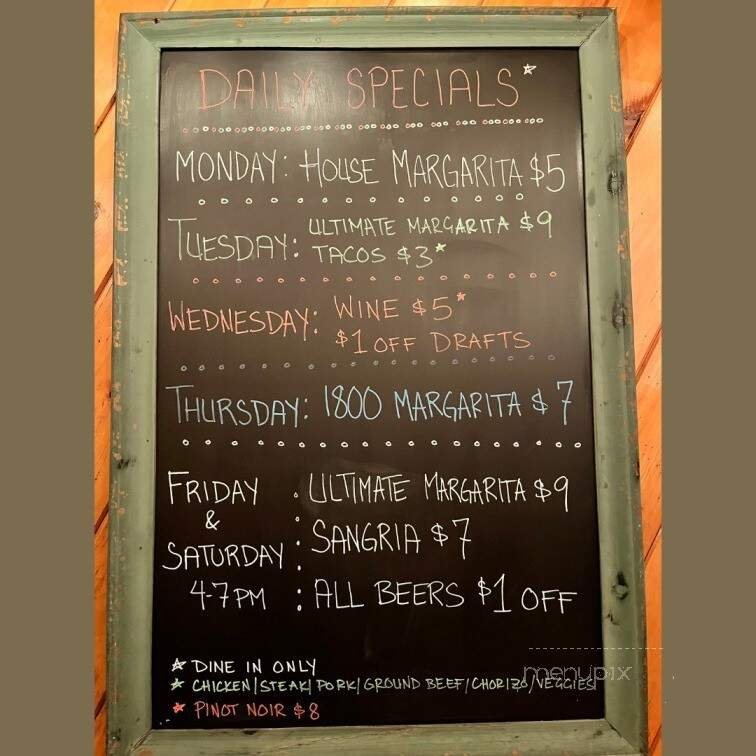 DAILY SPECIALS*
MONDAY: HOUSE MARGARITA $5
TUESDAY: ULTIMATE MARGARITA $9
TACOS $3*
WEDNESDAY: WINE $5*
$1 OFF DRAFTS
THURSDAY: 1800 MARGARITA $7
FRIDAY : ULTIMATE MARGARITA $9
&
SATURDAY : SANGRIA $7
4-7PM : ALL BEERS $1 OFF
* DINE IN ONLY
* CHICKEN/STEAK/PORK/GROUND BEEF/CHORIZO/VEGGIES/
* PINOT NOIR $8
menupix